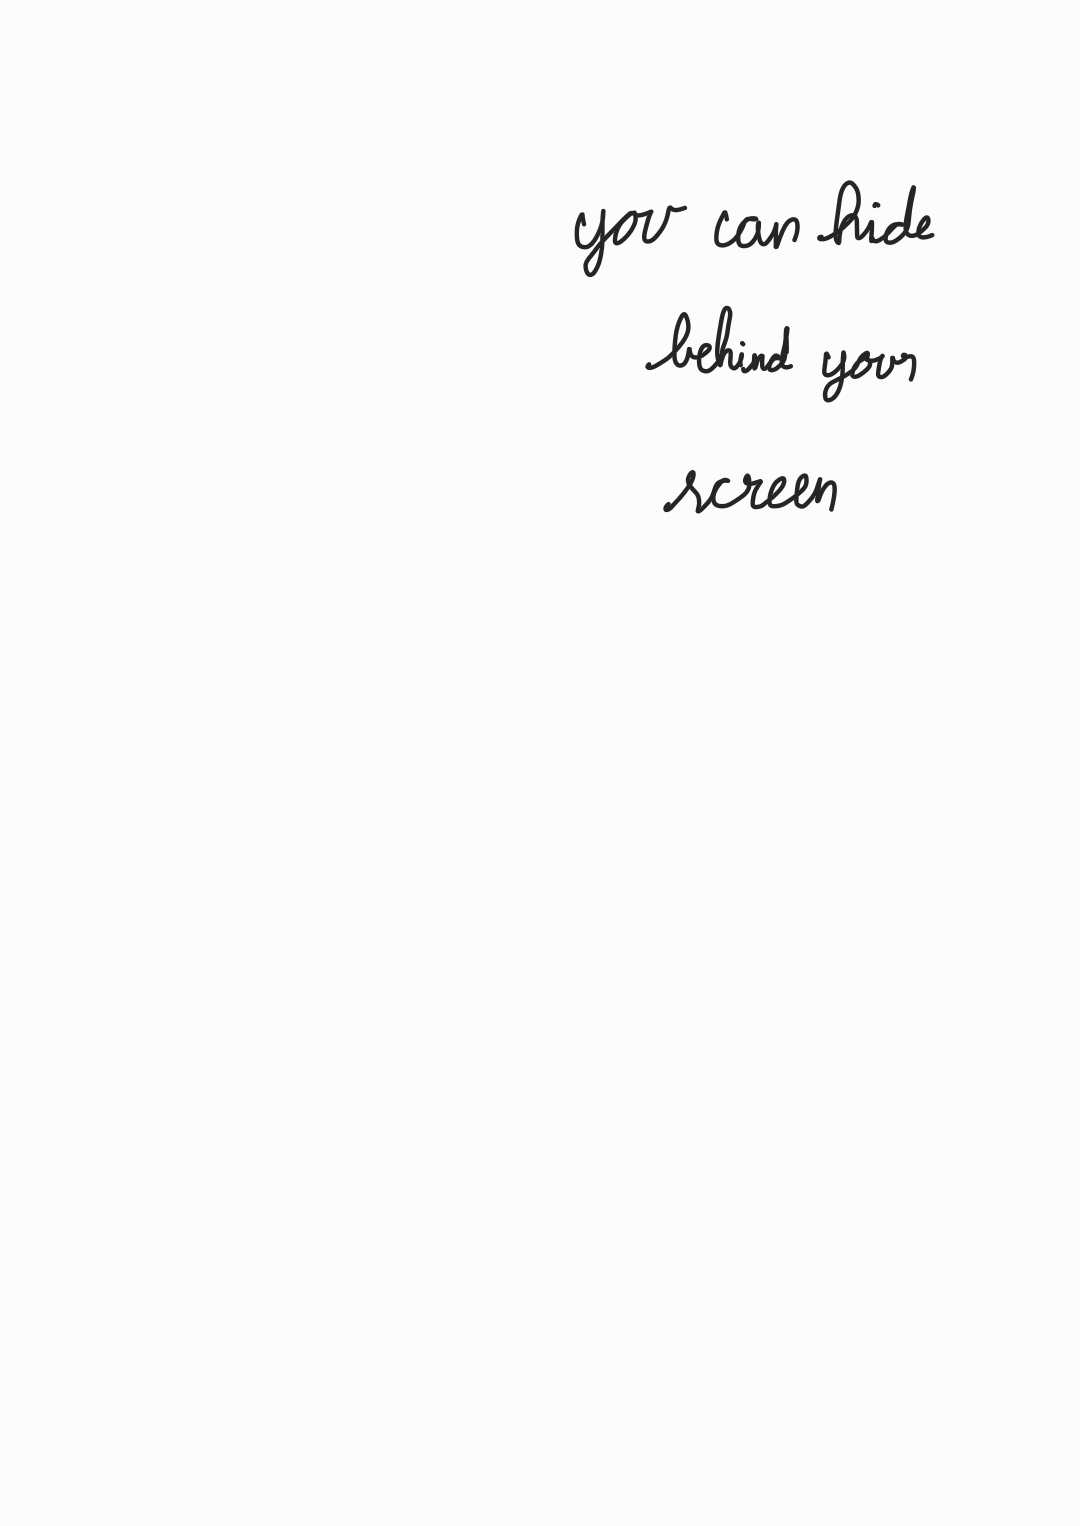 you can hide
behind your
screen